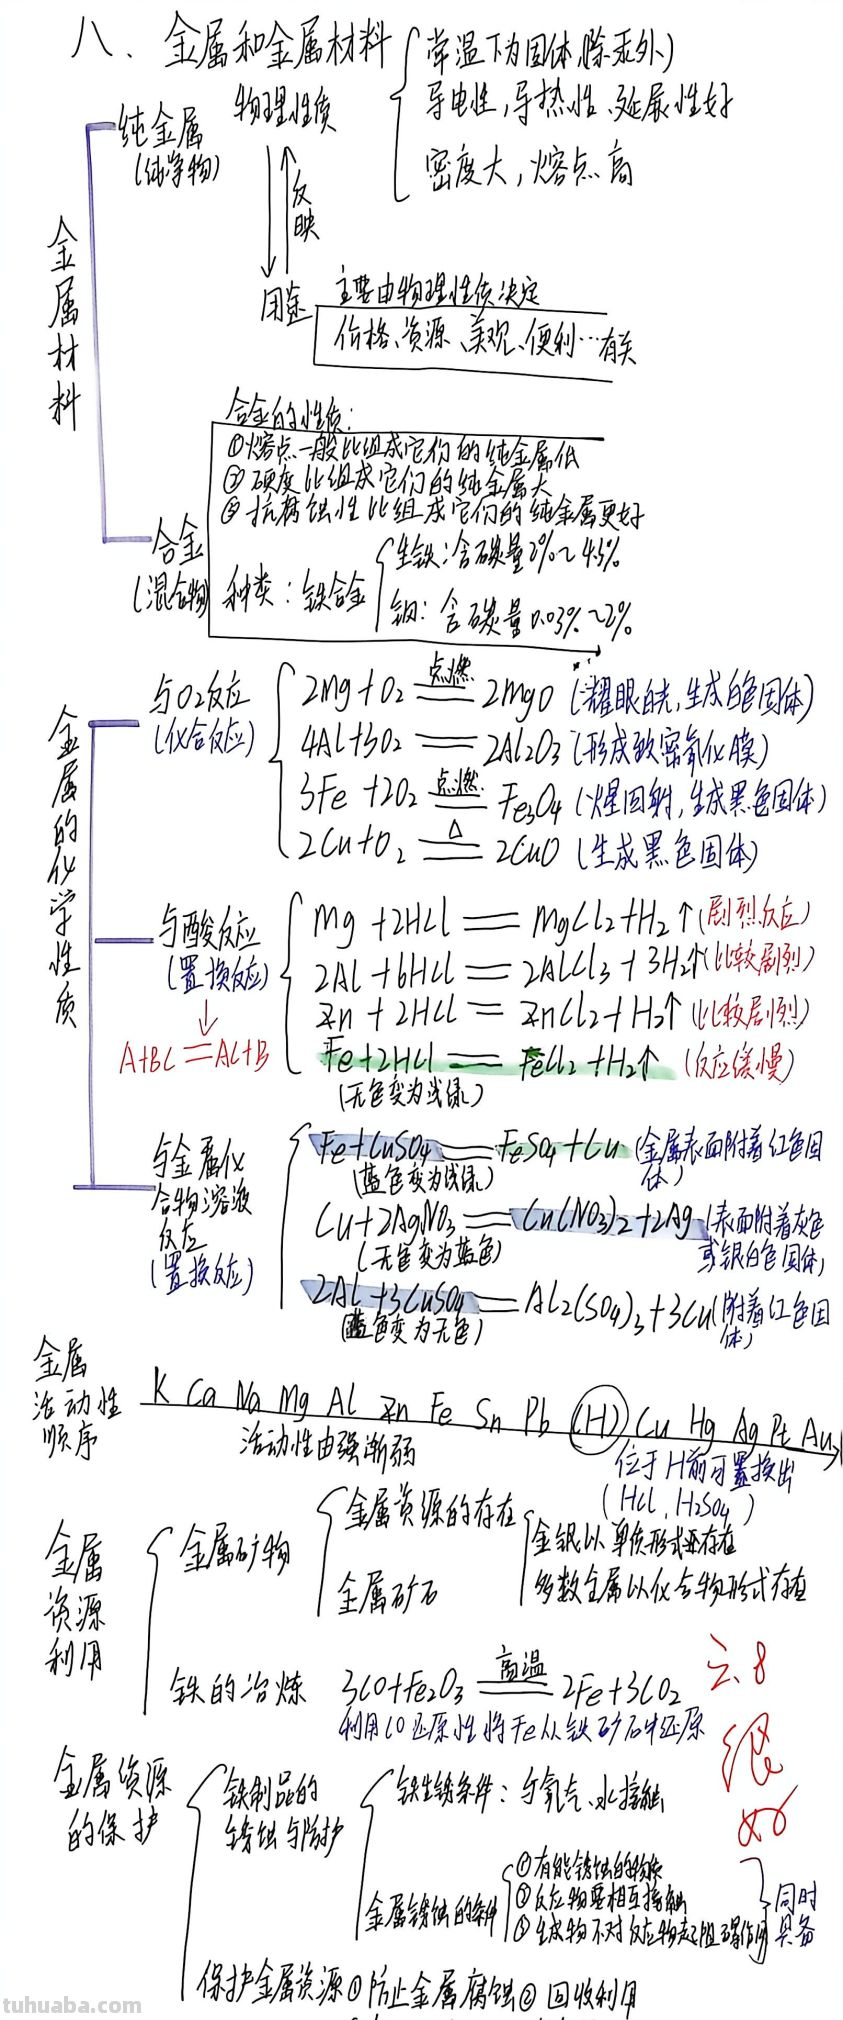 八、金属和金属材料
常温下为固体(除汞外)
导电性,导热性、延展性好
密度大,熔点高
纯金属
(纯净物)
物理性质
反映
用途
主要由物理性质决定
价格、资源、美观、便利…有关
金属材料
合金
(混合物)
合金的性质:
①熔点一般比组成它们的纯金属低
②硬度比组成它们的纯金属大
③抗腐蚀性比组成它们的纯金属更好
种类:铁合金
生铁:含碳量2%~4.3%
钢:含碳量0.03%~2%
金属的化学性质
与O2反应
(化合反应)
2Mg+O2 点燃══ 2MgO (耀眼白光,生成白色固体)
4Al+3O2 ══ 2Al2O3 (形成致密氧化膜)
3Fe+2O2 点燃══ Fe3O4 (火星四射,生成黑色固体)
2Cu+O2 △══ 2CuO (生成黑色固体)
与酸反应
(置换反应)
A+BC══AC+B
Mg+2HCl══MgCl2+H2↑(剧烈反应)
2Al+6HCl══2AlCl3+3H2↑(比较剧烈)
Zn+2HCl══ZnCl2+H2↑(比较剧烈)
Fe+2HCl══FeCl2+H2↑(反应缓慢)
(无色变为浅绿)
与金属化
合物溶液
反应
(置换反应)
Fe+CuSO4══FeSO4+Cu(金属表面附着红色固
体)
(蓝色变为浅绿)
Cu+2AgNO3══Cu(NO3)2+2Ag(表面附着灰色
或银白色固体)
(无色变为蓝色)
2Al+3CuSO4══Al2(SO4)3+3Cu(附着红色固
体)
(蓝色变为无色)
金属
活动性
顺序
K Ca Na Mg Al Zn Fe Sn Pb (H) Cu Hg Ag Pt Au
活动性由强渐弱
位于H前可置换出
(HCl、H2SO4)
金属
资源
利用
金属矿物
金属资源的存在
金银以单质形式存在
多数金属以化合物形式存在
金属矿石
铁的冶炼
3CO+Fe2O3 高温══ 2Fe+3CO2
利用CO还原性将Fe从铁矿石中还原
很
好
金属资源
的保护
铁制品的
锈蚀与防护
铁生锈条件:与氧气、水接触
金属锈蚀的条件
①有能锈蚀的物质
②反应物要相互接触
③生成物不对反应物起阻碍作用
同时
具备
保护金属资源①防止金属腐蚀②回收利用
tuhuaba.com